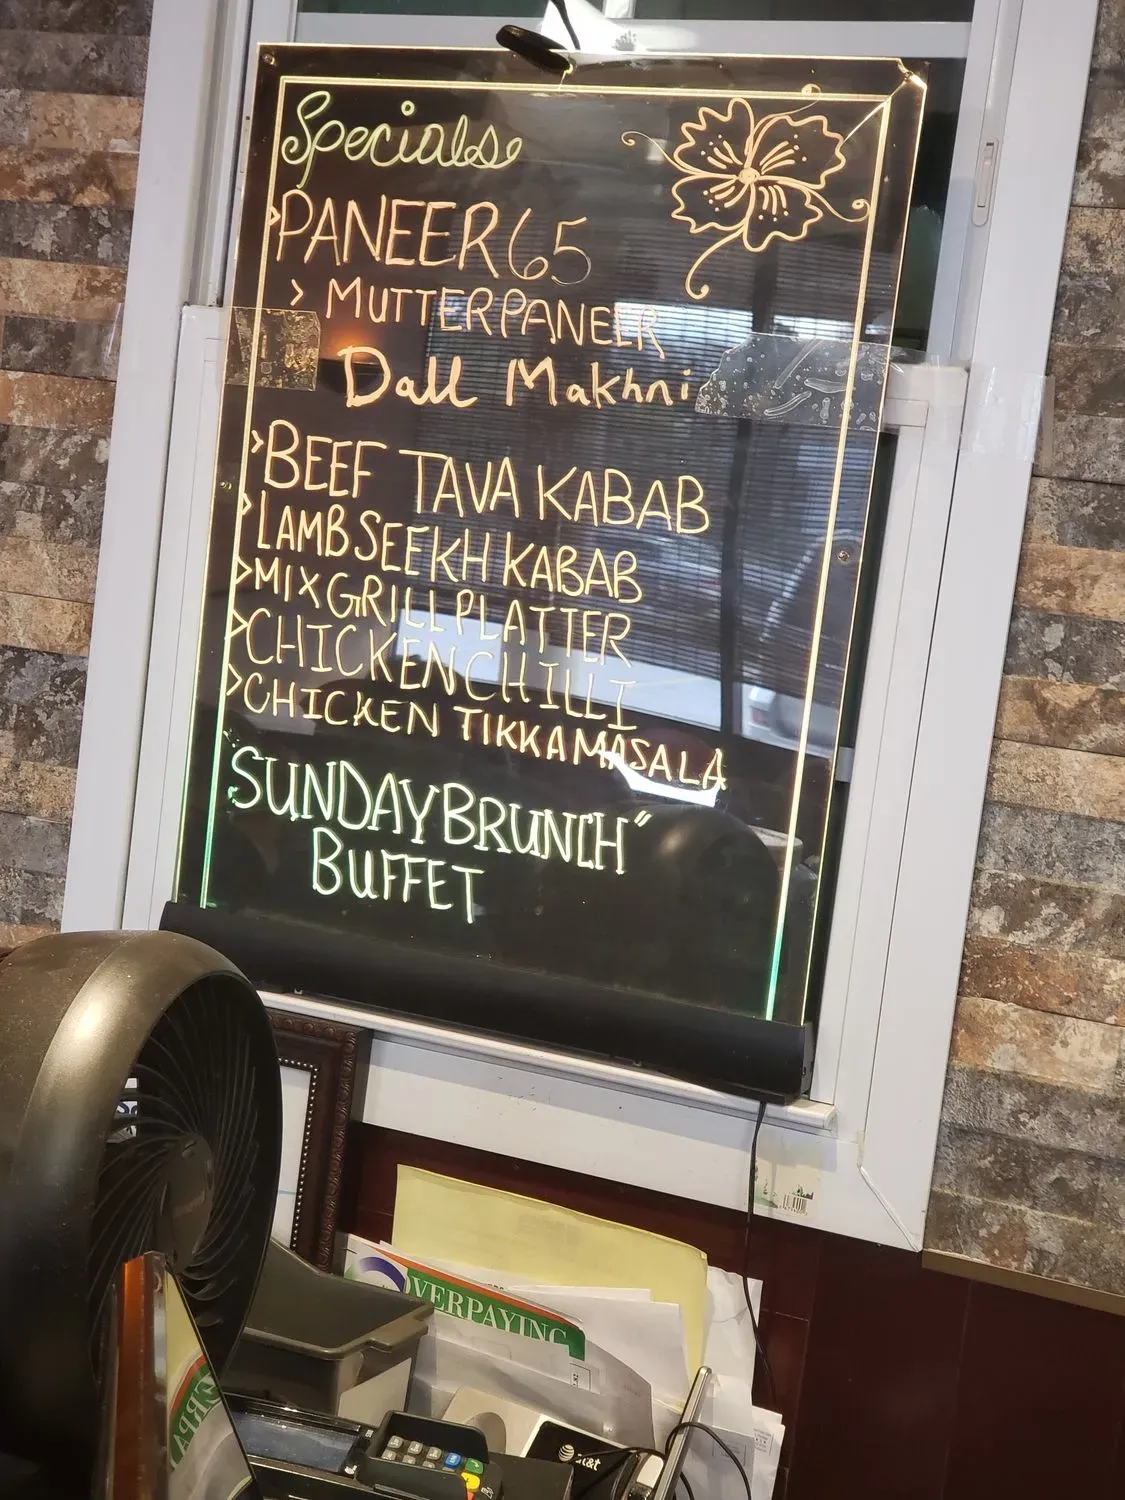 Specials
>PANEER 65
> MUTTER PANEER
Dall Makhni
>BEEF TAVA KABAB
>LAMB SEEKH KABAB
>MIX GRILL PLATTER
>CHICKEN CHILLI
>CHICKEN TIKKA MASALA
SUNDAY BRUNCH"
BUFFET
OVERPAYING
at&t